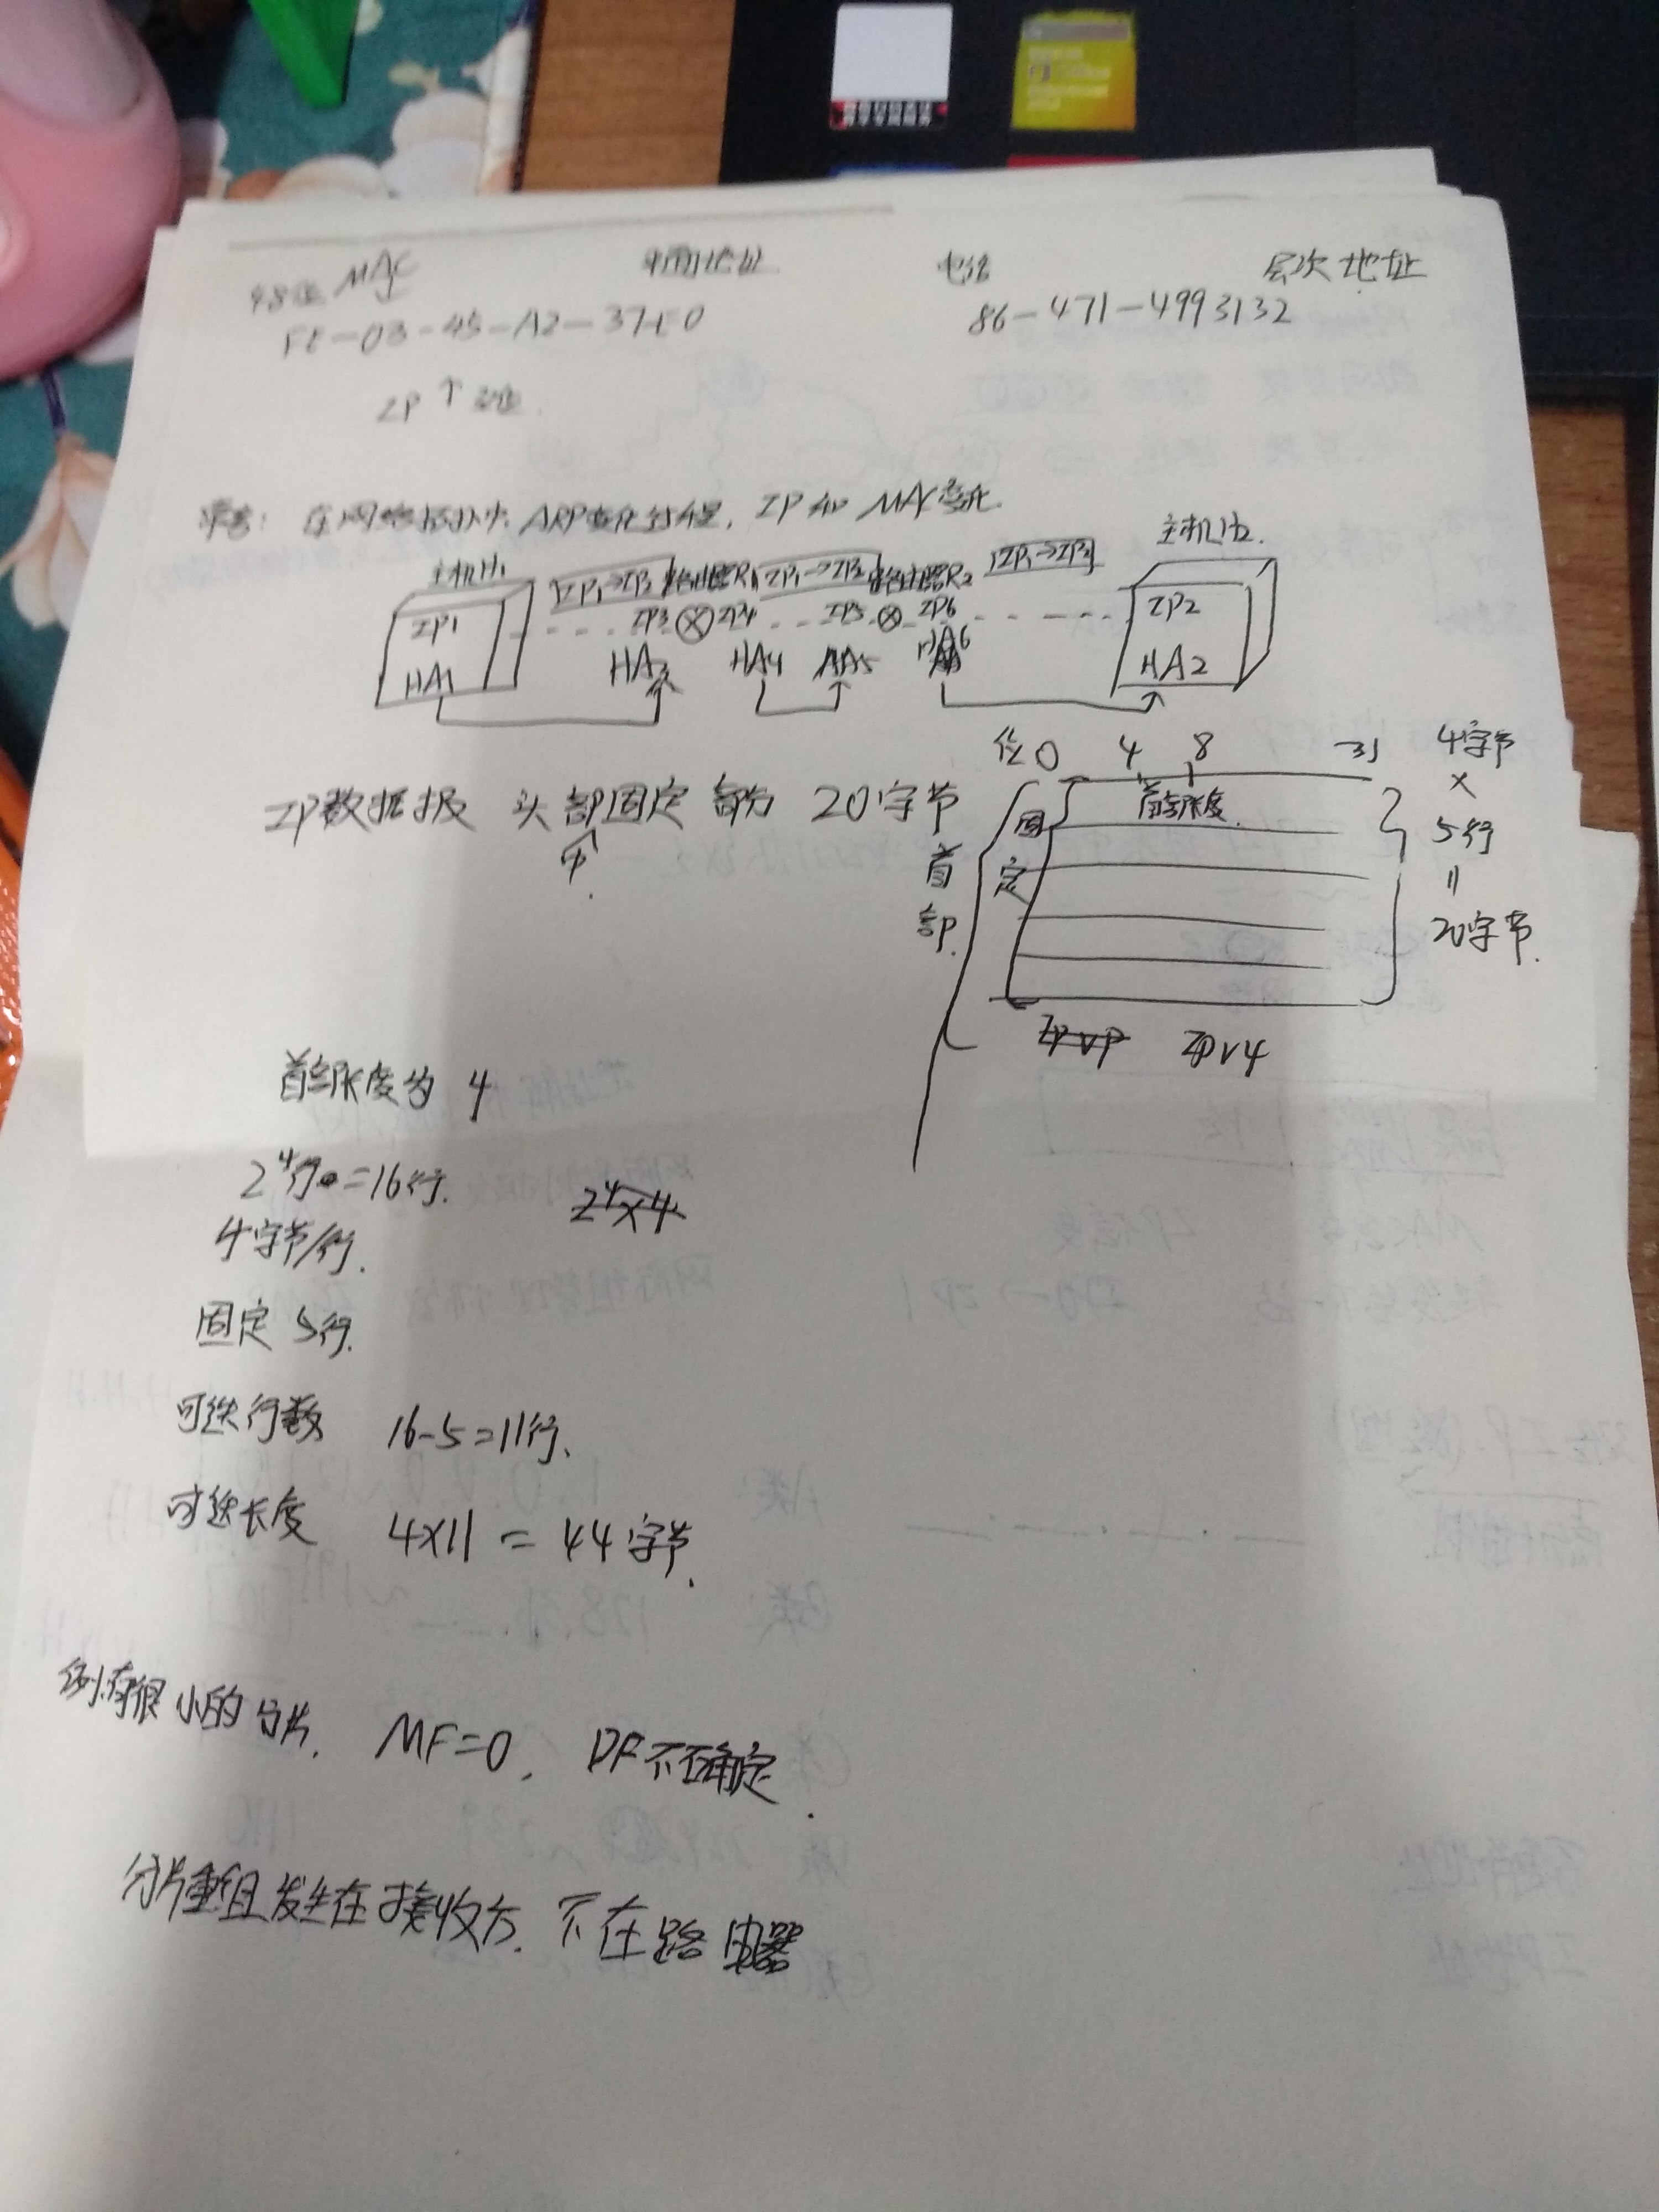 48位 MAC 平面地址 电话 层次地址
FE-03-45-A2-37-E0 86-471-4993132
IP ↑
在网络拓扑中 ARP变化过程, IP和MAC变化.
主机H1 IP1→IP2 路由器R1 IP1→IP2 路由器R2 IP1→IP2 主机H2.
IP1 IP3 IP4 IP5 IP6 IP2
HA1 HA3 HA4 HA5 HA6 HA2
位 0 4 8 31 4字节
×
IP数据报 头部固定部分 20字节
中
首部
固定
首部长度.
5行
=
20字节.
IPVP IPV4
首部长度为 4
2⁴行=16行. 2⁴×4
4字节/行.
固定 5行.
可选行数 16-5=11行.
可选长度 4×11 = 44字节.
例:有很小的分片. MF=0. DF不确定.
分片重组发生在接收方. 不在路由器